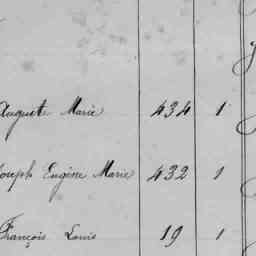 Auguste Marie 434 1
Joseph Eugène Marie 432 1
François Louis 19 1